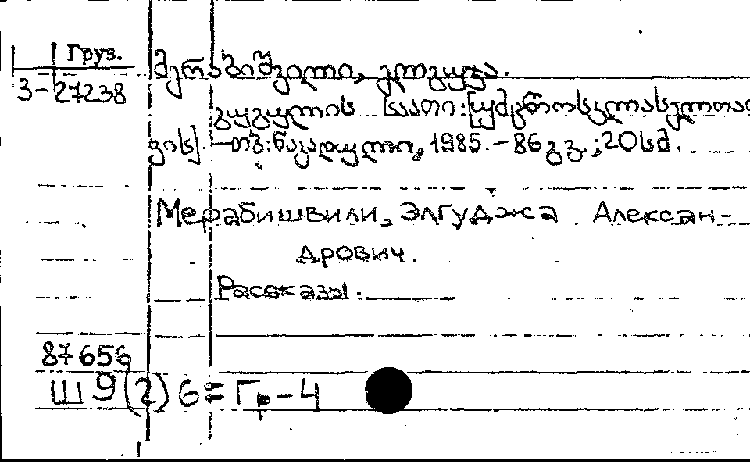 Груз.
3-27238
მერაბიშვილი, ელგუჯა.
გუგულის საათი: [უმცროსკლასელთათ
ვის] — თბ.: ნაკადული, 1985. - 86 გვ.; 20 სმ.
Мерабишвили, Элгуджа Алексан-
дрович.
Рассказы.
87656
Ш 9(2)6=Гр-4